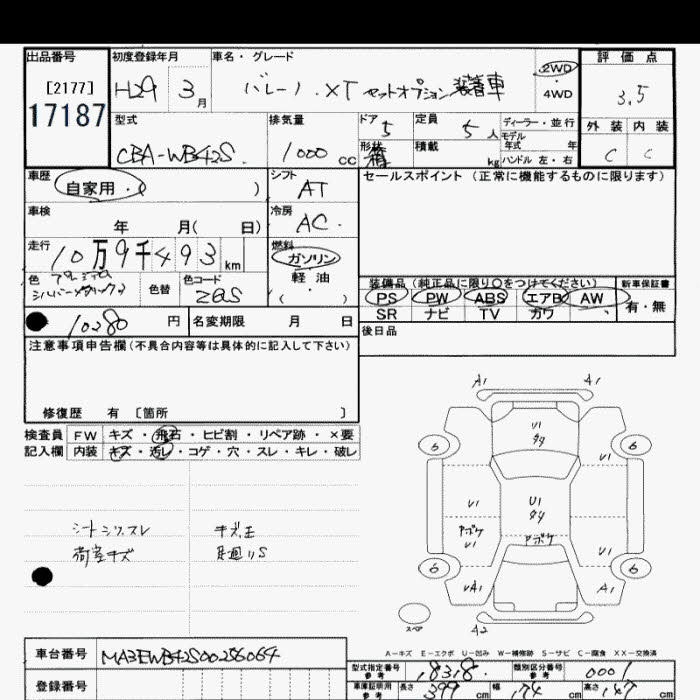 出品番号 初度登録年月 車名・グレード 2WD 4WD 評価点
[2177] 17187 H29 3月 バレーノ.XT セットオプション装着車 3.5
型式 排気量 ドア 5 定員 5人 ディーラー・並行 外装 内装
CBA-WB42S. 1000cc 形状 箱 積載 kg モデル年式 年 ハンドル 左・右 C C
車歴 自家用・( ) シフト AT セールスポイント (正常に機能するものに限ります)
車検 年 月( 日) 冷房 AC.
走行 10万9千493km 燃料 ガソリン 軽油 ( )
色 シルバーメタリック2 色替 色コード Z6S
装備品 (純正品に限り○をつけてください) 新車保証書
PS PW ABS エアB AW 有・無
SR ナビ TV カワ
10280円 名変期限 月 日 後日品
注意事項申告欄(不具合内容等は具体的に記入して下さい)
修復歴 有 〔箇所 〕
検査員 FW キズ・飛石・ヒビ割・リペア跡・×要
記入欄 内装 キズ・汚レ・コゲ・穴・スレ・キレ・破レ
シートシワ.スレ キズ.E
荷室キズ 足廻リS
A1 A1
U1 タ4
6 6
U1 U1 タ4
アボケ U1 アボケ U1
6 6
UA1 A1
スペア A2
A-キズ E-エクボ U-凹み W-補修跡 S-サビ C-腐食 XX-交換済
車台番号 MA3EWB42S00256064
登録番号
型式指定番号 参考 18318. 類別区分番号 参考 0001
車庫証明用 参考 長さ 399cm 幅 174cm 高さ 147cm